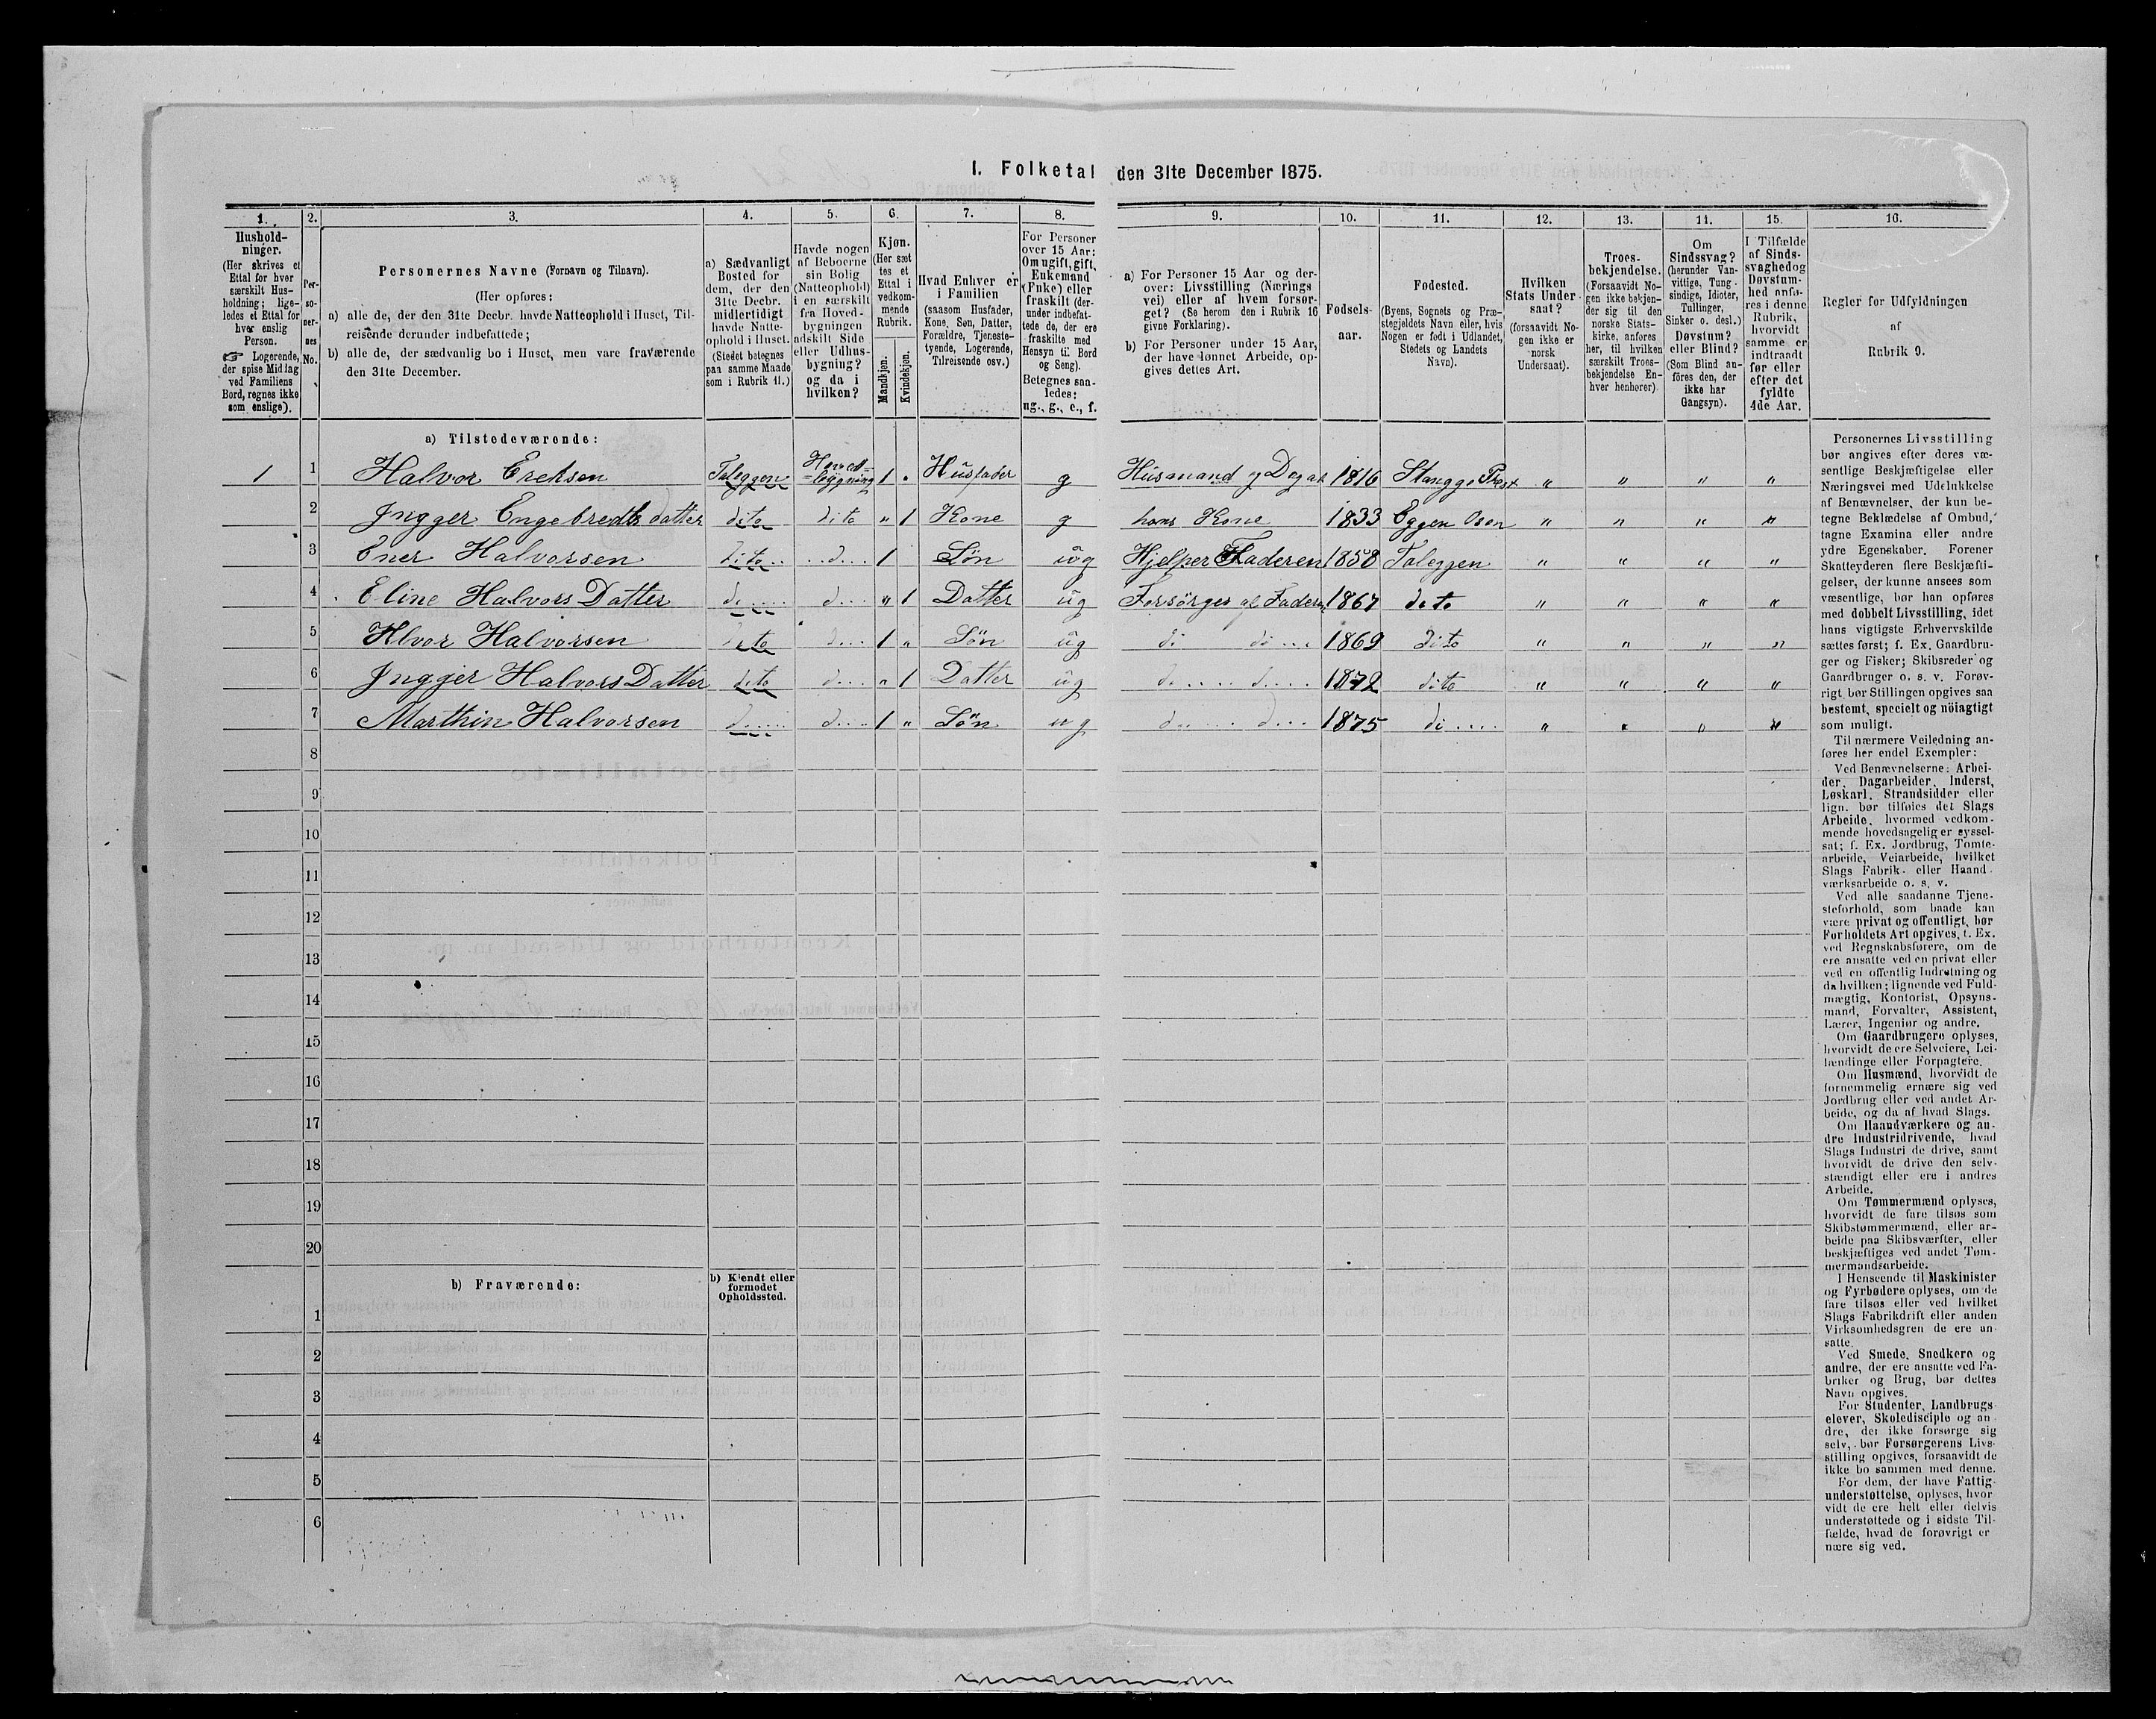 I. Folketal den 31te December 1875.
1. 2. 3. 4. 5. 6. 7. 8. 9. 10. 11. 12. 13. 14. 15. 16.
Hushold-
ninger.
(Her skrives et
Ettal for hver
særskilt Hus-
holdning; lige-
ledes et Ettal for
hver enslig
Person.
☞ Logerende,
der spise Middag
ved Familiens
Bord, regnes ikke
som enslige).
Per-
so-
ner-
nes
No.
Personernes Navne (Fornavn og Tilnavn).
(Her opføres:
a) alle de, der den 31te Decbr. havde Natteophold i Huset, Til-
reisende derunder indbefattede;
b) alle de, der sædvanlig bo i Huset, men vare fraværende
den 31te December.
a) Sædvanligt
Bosted for
dem, der den
31te Decbr.
midlertidigt
havde Natte-
ophold i Huset.
(Stedet betegnes
paa samme Maade
som i Rubrik 11.)
Havde nogen
af Beboerne
sin Bolig
(Natteophold)
i en særskilt
fra Hoved-
bygningen
adskilt Side
eller Udhus-
bygning?
og da i
hvilken?
Kjøn.
(Her sæt-
tes et
Ettal i
vedkom-
mende
Rubrik.
Mandkjøn.
Kvindekjøn.
Hvad Enhver er
i Familien
(saasom Husfader,
Kone, Søn, Datter,
Forældre, Tjeneste-
tyende, Logerende,
Tilreisende osv.)
For Personer
over 15 Aar:
Om ugift, gift,
Enkemand
(Enke) eller
fraskilt (der-
under indbefat-
tede de, der ere
fraskilte med
Hensyn til Bord
og Seng).
Betegnes saa-
ledes:
ug., g., e., f.
a) For Personer 15 Aar og der-
over: Livsstilling (Nærings
vei) eller af hvem forsør-
get? (Se herom den i Rubrik 16
givne Forklaring).
b) For Personer under 15 Aar,
der have lønnet Arbeide, op-
gives dettes Art.
Fødsels-
aar.
Fødested.
(Byens, Sognets og Præ-
stegjeldets Navn eller, hvis
Nogen er født i Udlandet,
Stedets og Landets
Navn).
Hvilken
Stats Under-
saat?
(forsaavidt No-
gen ikke er
norsk
Undersaat).
Troes-
bekjendelse.
(Forsaavidt No-
gen ikke bekjen-
der sig til den
norske Stats-
kirke, anføres
her, til hvilken
særskilt Troes-
bekjendelse En-
hver henhører).
Om
Sindssvag?
(herunder Van-
vittige, Tung-
sindige, Idioter,
Tullinger,
Sinker o. desl.)
Døvstum?
eller Blind?
(Som Blind an-
føres den, der
ikke har
Gangsyn).
I Tilfælde
af Sinds-
svaghed og
Døvstum-
hed anfø-
res i denne
Rubrik,
hvorvidt
samme er
indtraadt
før eller
efter det
fyldte
4de Aar.
Regler for Udfyldningen
af
Rubrik 9.
a) Tilstedeværende:
1 1 Halvor Ereksen Taleggen Hoved=
=bygning 1 „ Husfader g Husmand og Dagar 1816 Stangge Prest „ „ „ „
2 Jngger Engebredts datter dito dito „ 1 Kone g hans Kone 1833 Eggen Osen „ „ „ „
3 Ener Halvorsen dito.. ..d.... 1 Søn ug Hjelper Faderen 1858 Taleggen „ „ „ „
4 Eline Halvors Datter d..... d.... „ 1 Datter ug Forsörges af Faderen 1867 dito „ „ „ „
5 Hlvor Halvorsen dito d.... 1 „ Søn ug di di... 1869 dito „ „ „ „
6 Jngjer Halvors Datter dito d.... „ 1 Datter ug d..... d.... 1872 dito „ „ „ „
7 Marthin Halvorsen d..... d.... 1 „ Søn ug d..... d.... 1875 di.... „ „ „ „
8
9
10
11
12
13
14
15
16
17
18
19
20
b) Fraværende:
b) Kjendt eller
formodet
Opholdssted.
1
2
3
4
5
6
Personernes Livsstilling
bør angives efter deres væ-
sentlige Beskjæftigelse eller
Næringsvei med Udelukkelse
af Benævnelser, der kun be-
tegne Beklædelse af Ombud,
tagne Examina eller andre
ydre Egenskaber. Forener
Skatteyderen flere Beskjæfti-
gelser, der kunne ansees som
væsentlige, bør han opføres
med dobbelt Livsstilling, idet
hans vigtigste Erhvervskilde
sættes først; f. Ex. Gaardbru-
ger og Fisker; Skibsreder og
Gaardbruger o. s. v. Forøv-
rigt bør Stillingen opgives saa
bestemt, specielt og nöiagtigt
som muligt.
Til nærmere Veiledning an-
føres her endel Exempler:
Ved Benævnelserne: Arbei-
der, Dagarbeider, Inderst,
Løskarl, Strandsidder eller
lign. bør tilføies det Slags
Arbeide, hvormed vedkom-
mende hovedsagelig er syssel-
sat; f. Ex. Jordbrug, Tomte-
arbeide, Veiarbeide, hvilket
Slags Fabrik- eller Haand-
værksarbeide o. s. v.
Ved alle saadanne Tjene-
steforhold, som baade kan
være privat og offentligt, bør
Forholdets Art opgives, f. Ex.
ved Regnskabsførere, om de
ere ansatte ved en privat eller
ved en offentlig Indretning og
da hvilken; lignende ved Fuld-
mægtig, Kontorist, Opsyns-
mand, Forvalter, Assistent,
Lærer, Ingeniør og andre.
Om Gaardbrugere oplyses,
hvorvidt de ere Selveiere, Lei-
lændinge eller Forpagtere.
Om Husmænd, hvorvidt de
fornemmelig ernære sig ved
Jordbrug eller ved andet Ar-
beide, og da af hvad Slags.
Om Haandværkere og an-
dre Industridrivende, hvad
Slags Industri de drive, samt
hvorvidt de drive den selv-
stændigt eller ere i andres
Arbeide.
Om Tømmermænd oplyses,
hvorvidt de fare tilsøs som
Skibstømmermænd, eller ar-
beide paa Skibsværfter, eller
beskjæftiges ved andet Tøm-
mermandsarbeide.
I Henseende til Maskinister
og Fyrbødere oplyses, om de
fare tilsøs eller ved hvilket
Slags Fabrikdrift eller anden
Virksomhedsgren de ere an-
satte.
Ved Smede, Snedkere og
andre, der ere ansatte ved Fa-
briker og Brug, bør dettes
Navn opgives.
For Studenter, Landbrugs-
elever, Skoledisciple og an-
dre, der ikke forsørge sig
selv, bør Forsørgerens Livs-
stilling opgives, forsaavidt de
ikke bo sammen med denne.
For dem, der have Fattig-
understøttelse, oplyses, hvor-
vidt de ere helt eller delvis
understøttede og i sidste Til-
fælde, hvad de forøvrigt er-
nære sig ved.